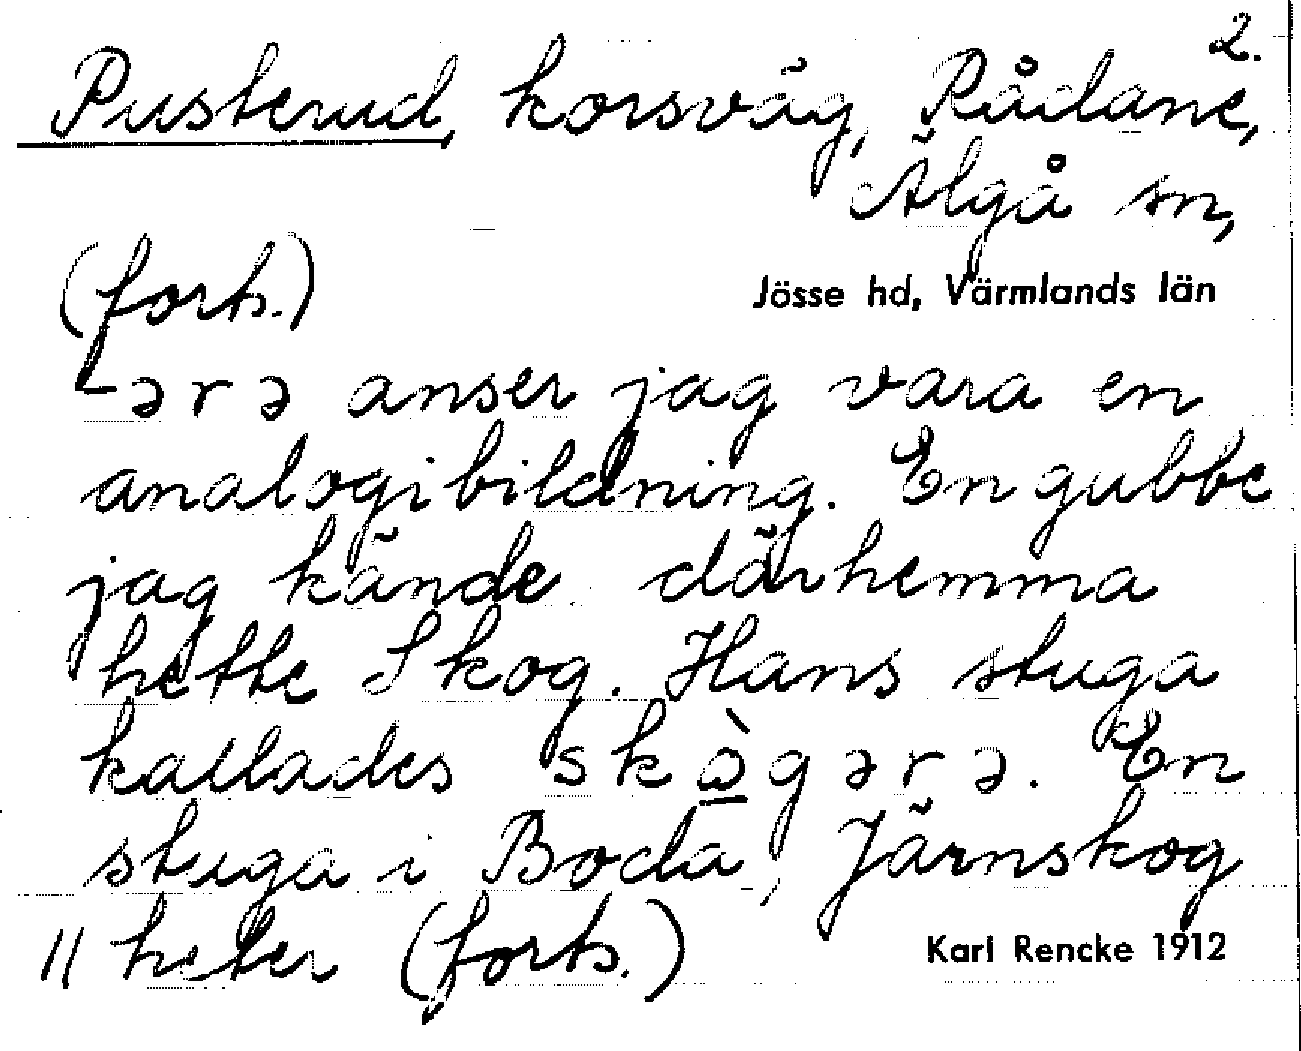 2.
Pusterud, korsväg, Rådane,
Älgå sn,
(forts.)
Jösse hd, Värmlands län
-ərə anser jag vara en
analogibildning. En gubbe
jag kände därhemma
hette Skog. Hans stuga
kallades skò̱gərə. En
stuga i Boda, Järnskog
// heter (forts.)
Karl Rencke 1912